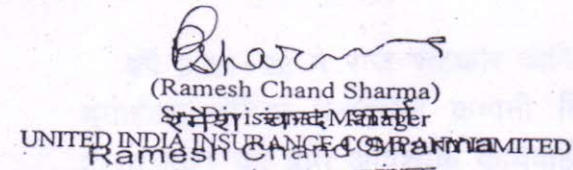 (Ramesh Chand Sharma)
Sr. Divisional Manager
रमेश चन्द शर्मा
UNITED INDIA INSURANCE COMPANY LIMITED
Ramesh Chand Sharma